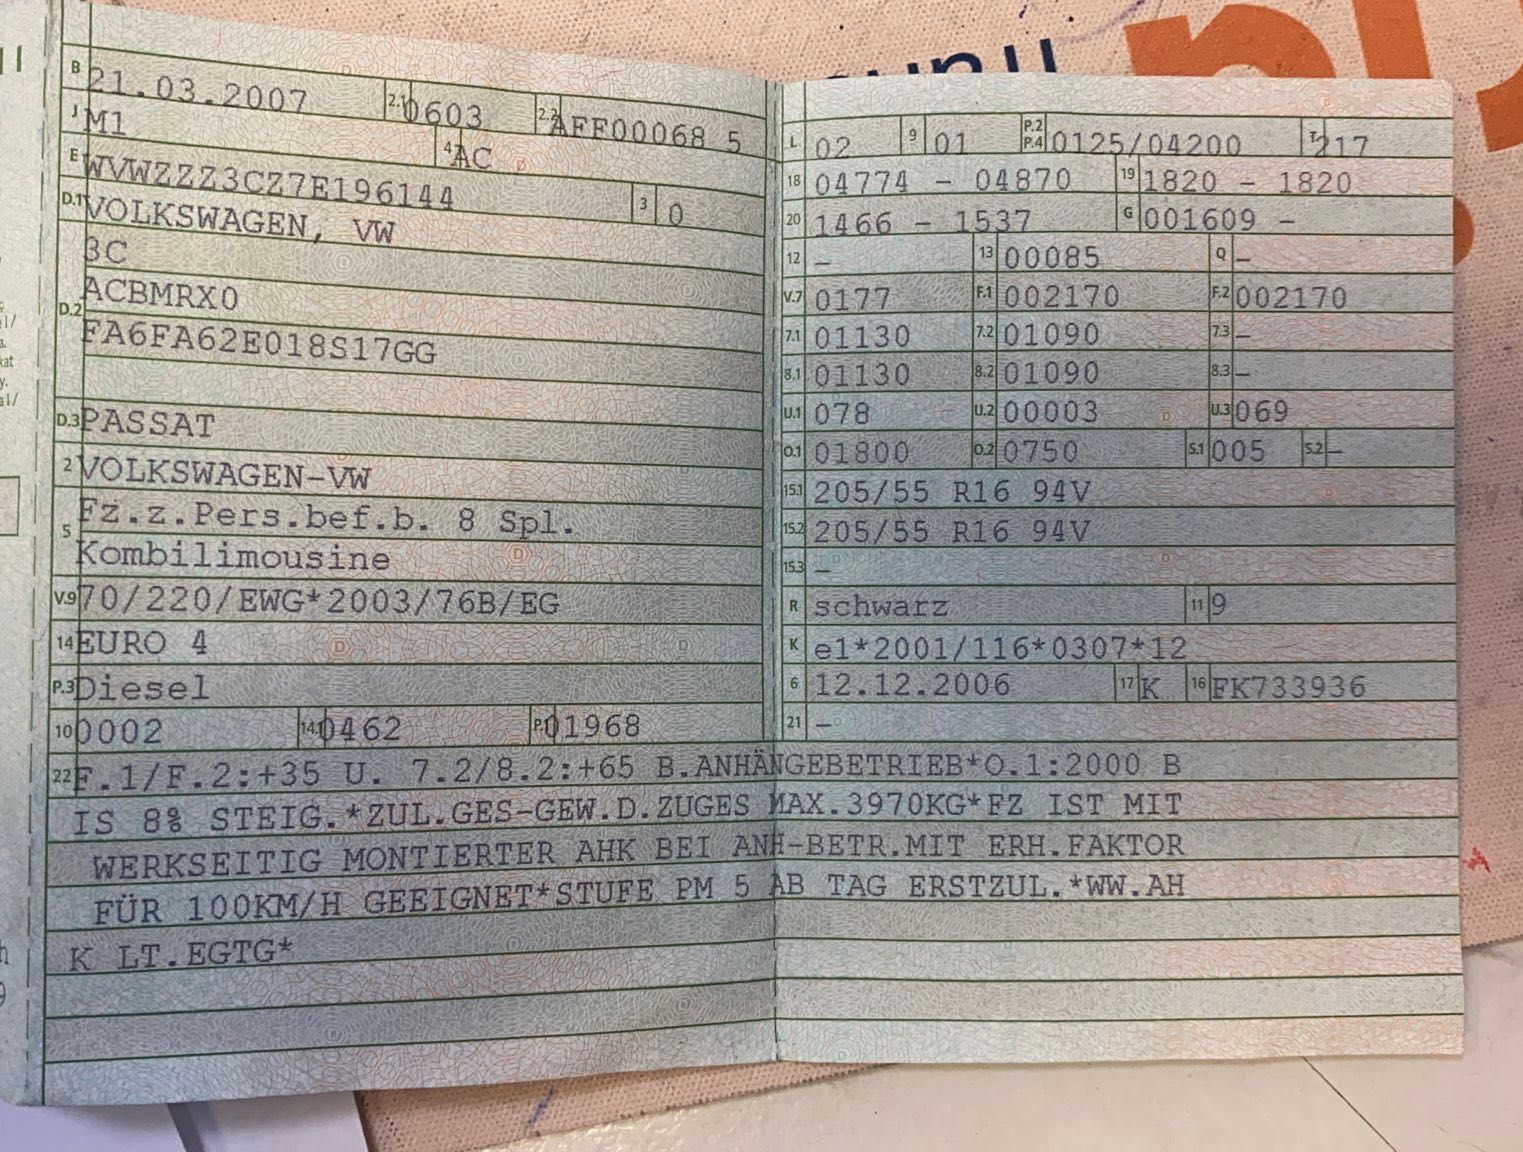 B 21.03.2007 2.1 0603 2.2 AFF00068 5
J M1 4 AC
E WVWZZZ3CZ7E196144 3 0
D.1 VOLKSWAGEN, VW
D.2 3C
ACBMRX0
FA6FA62E018S17GG
D.3 PASSAT
2 VOLKSWAGEN-VW
5 Fz.z.Pers.bef.b. 8 Spl.
Kombilimousine
V.9 70/220/EWG*2003/76B/EG
14 EURO 4
P.3 Diesel
10 0002 14.1 0462 P.1 01968
L 02 9 01 P.2 P.4 0125/04200 T 217
18 04774 - 04870 19 1820 - 1820
20 1466 - 1537 G 001609 -
12 - 13 00085 Q -
V.7 0177 F.1 002170 F.2 002170
7.1 01130 7.2 01090 7.3 -
8.1 01130 8.2 01090 8.3 -
U.1 078 U.2 00003 U.3 069
O.1 01800 O.2 0750 S.1 005 S.2 -
15.1 205/55 R16 94V
15.2 205/55 R16 94V
15.3 -
R schwarz 11 9
K e1*2001/116*0307*12
6 12.12.2006 17 K 16 FK733936
21 -
22 F.1/F.2:+35 U. 7.2/8.2:+65 B.ANHÄNGEBETRIEB*O.1:2000 B
IS 8% STEIG.*ZUL.GES-GEW.D.ZUGES MAX.3970KG*FZ IST MIT
WERKSEITIG MONTIERTER AHK BEI ANH-BETR.MIT ERH.FAKTOR
FÜR 100KM/H GEEIGNET*STUFE PM 5 AB TAG ERSTZUL.*WW.AH
K LT.EGTG*